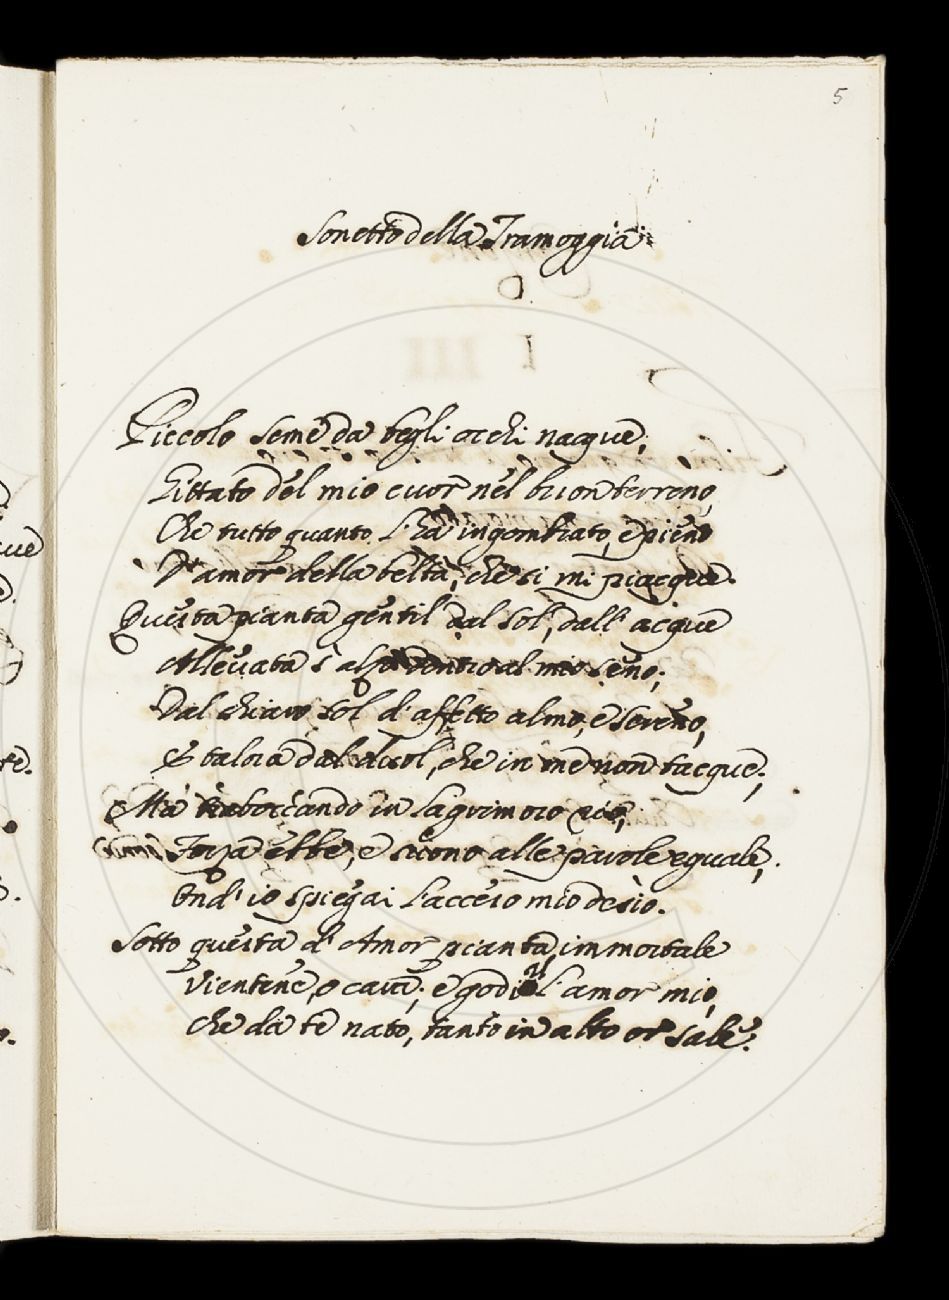 5
Sonetto della Tramoggia
I
Piccolo seme da begli occhi nacque,
Gittato del mio cuor nel buon terreno,
Che tutto quanto l'ha ingombrato, e pieno
D'amor della beltà, che si mi piacque.
Questa pianta gentil dal sol, dall' acque
Allevata s'alzò dentro al mio seno;
Dal chiaro sol d'affetto almo, e sereno,
E talora dal duol, che in me non tacque;
Ma traboccando in lagrimoso rio,
Forza ebbe, e suono alle parole eguale,
Ond' io spiegai l'acceso mio desio.
Sotto questa d' Amor pianta immortale
Vientene, o cara; e godi l'amor mio,
che da te nato, tanto in alto or sale.